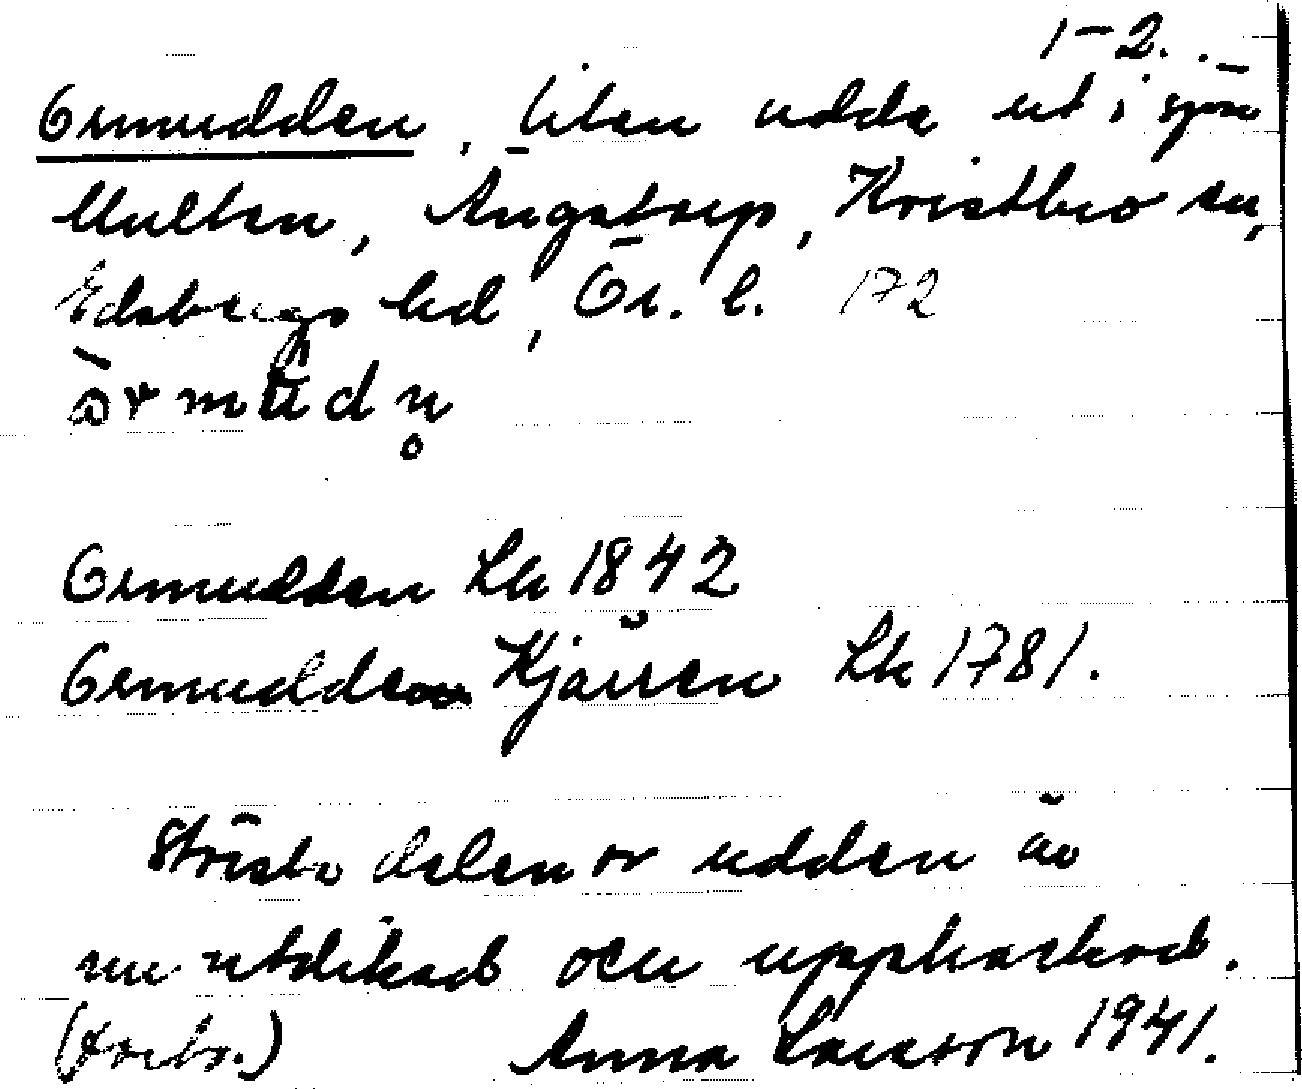 1-2.
Ormudden, liten udde ut i sjön
Multen, Ängstorp, Kristbro sn,
Edsbergs hd, Ör. l. 172
Ormudden Lk 1842
Ormudden Kjärren Lk 1781.
Största delen av udden är
nu utdikad och upphackad.
(forts.) Anna Larsson 1941.